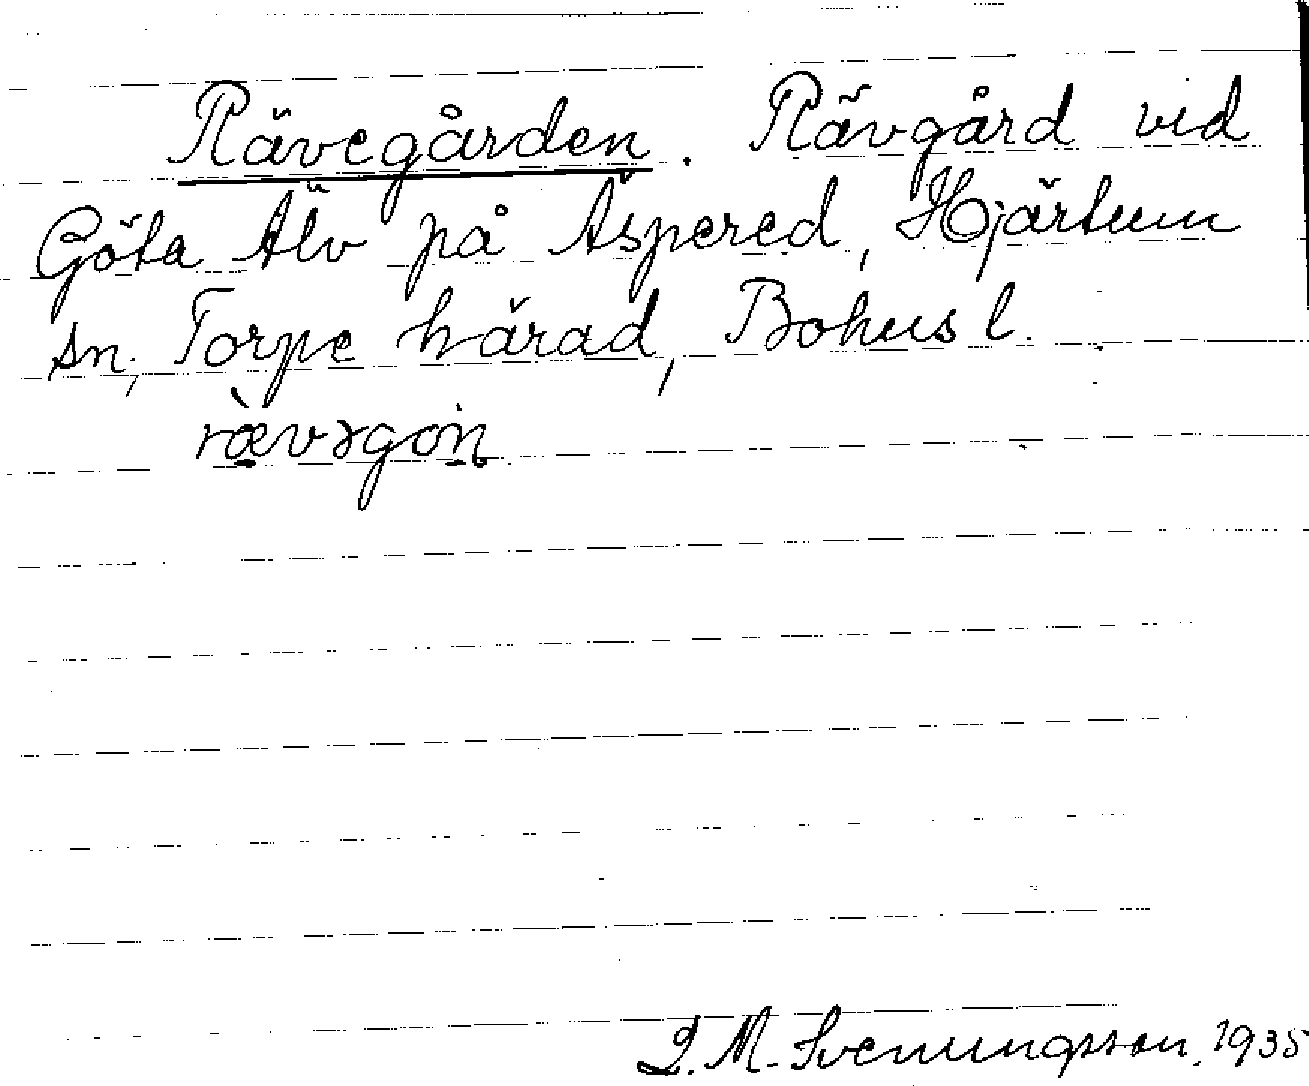 Rävegården. Rävgård vid
Göta Älv på Äspered, Hjärtum
sn, Torpe härad, Bohusl.
ræ̀vəgoṇ
J. M. Svenungsson, 1935